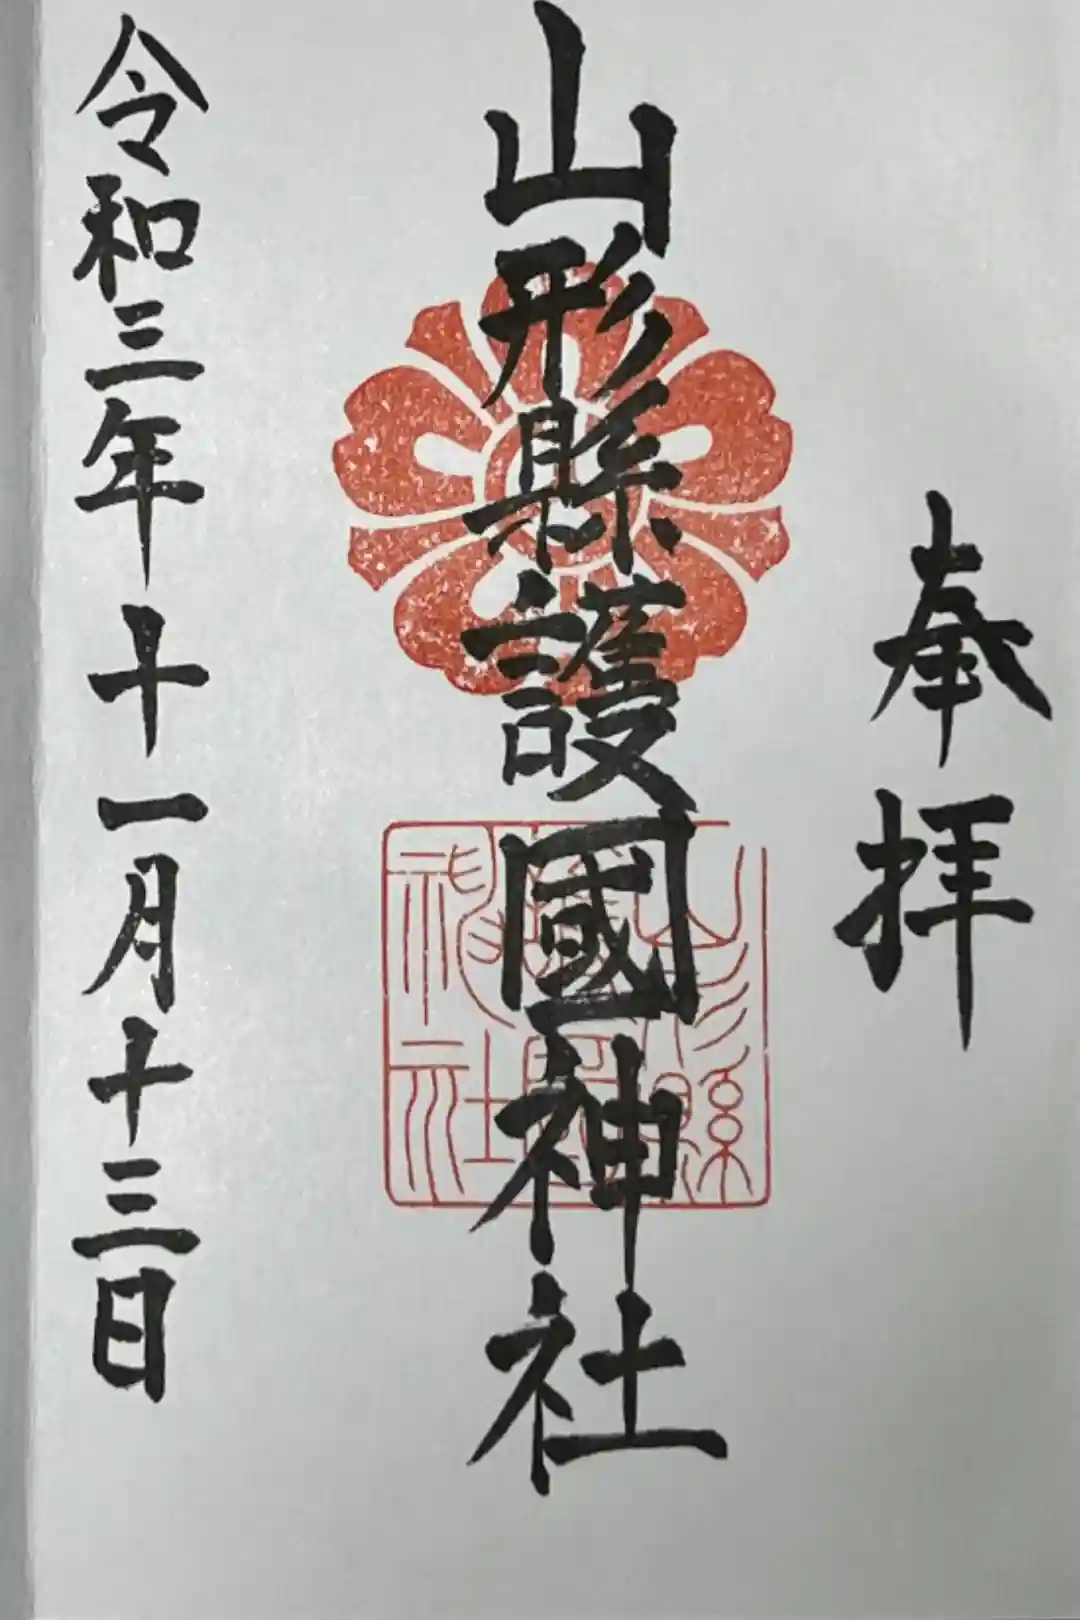 奉拝
山形縣護國神社
山形縣護國神社
令和三年十一月十三日